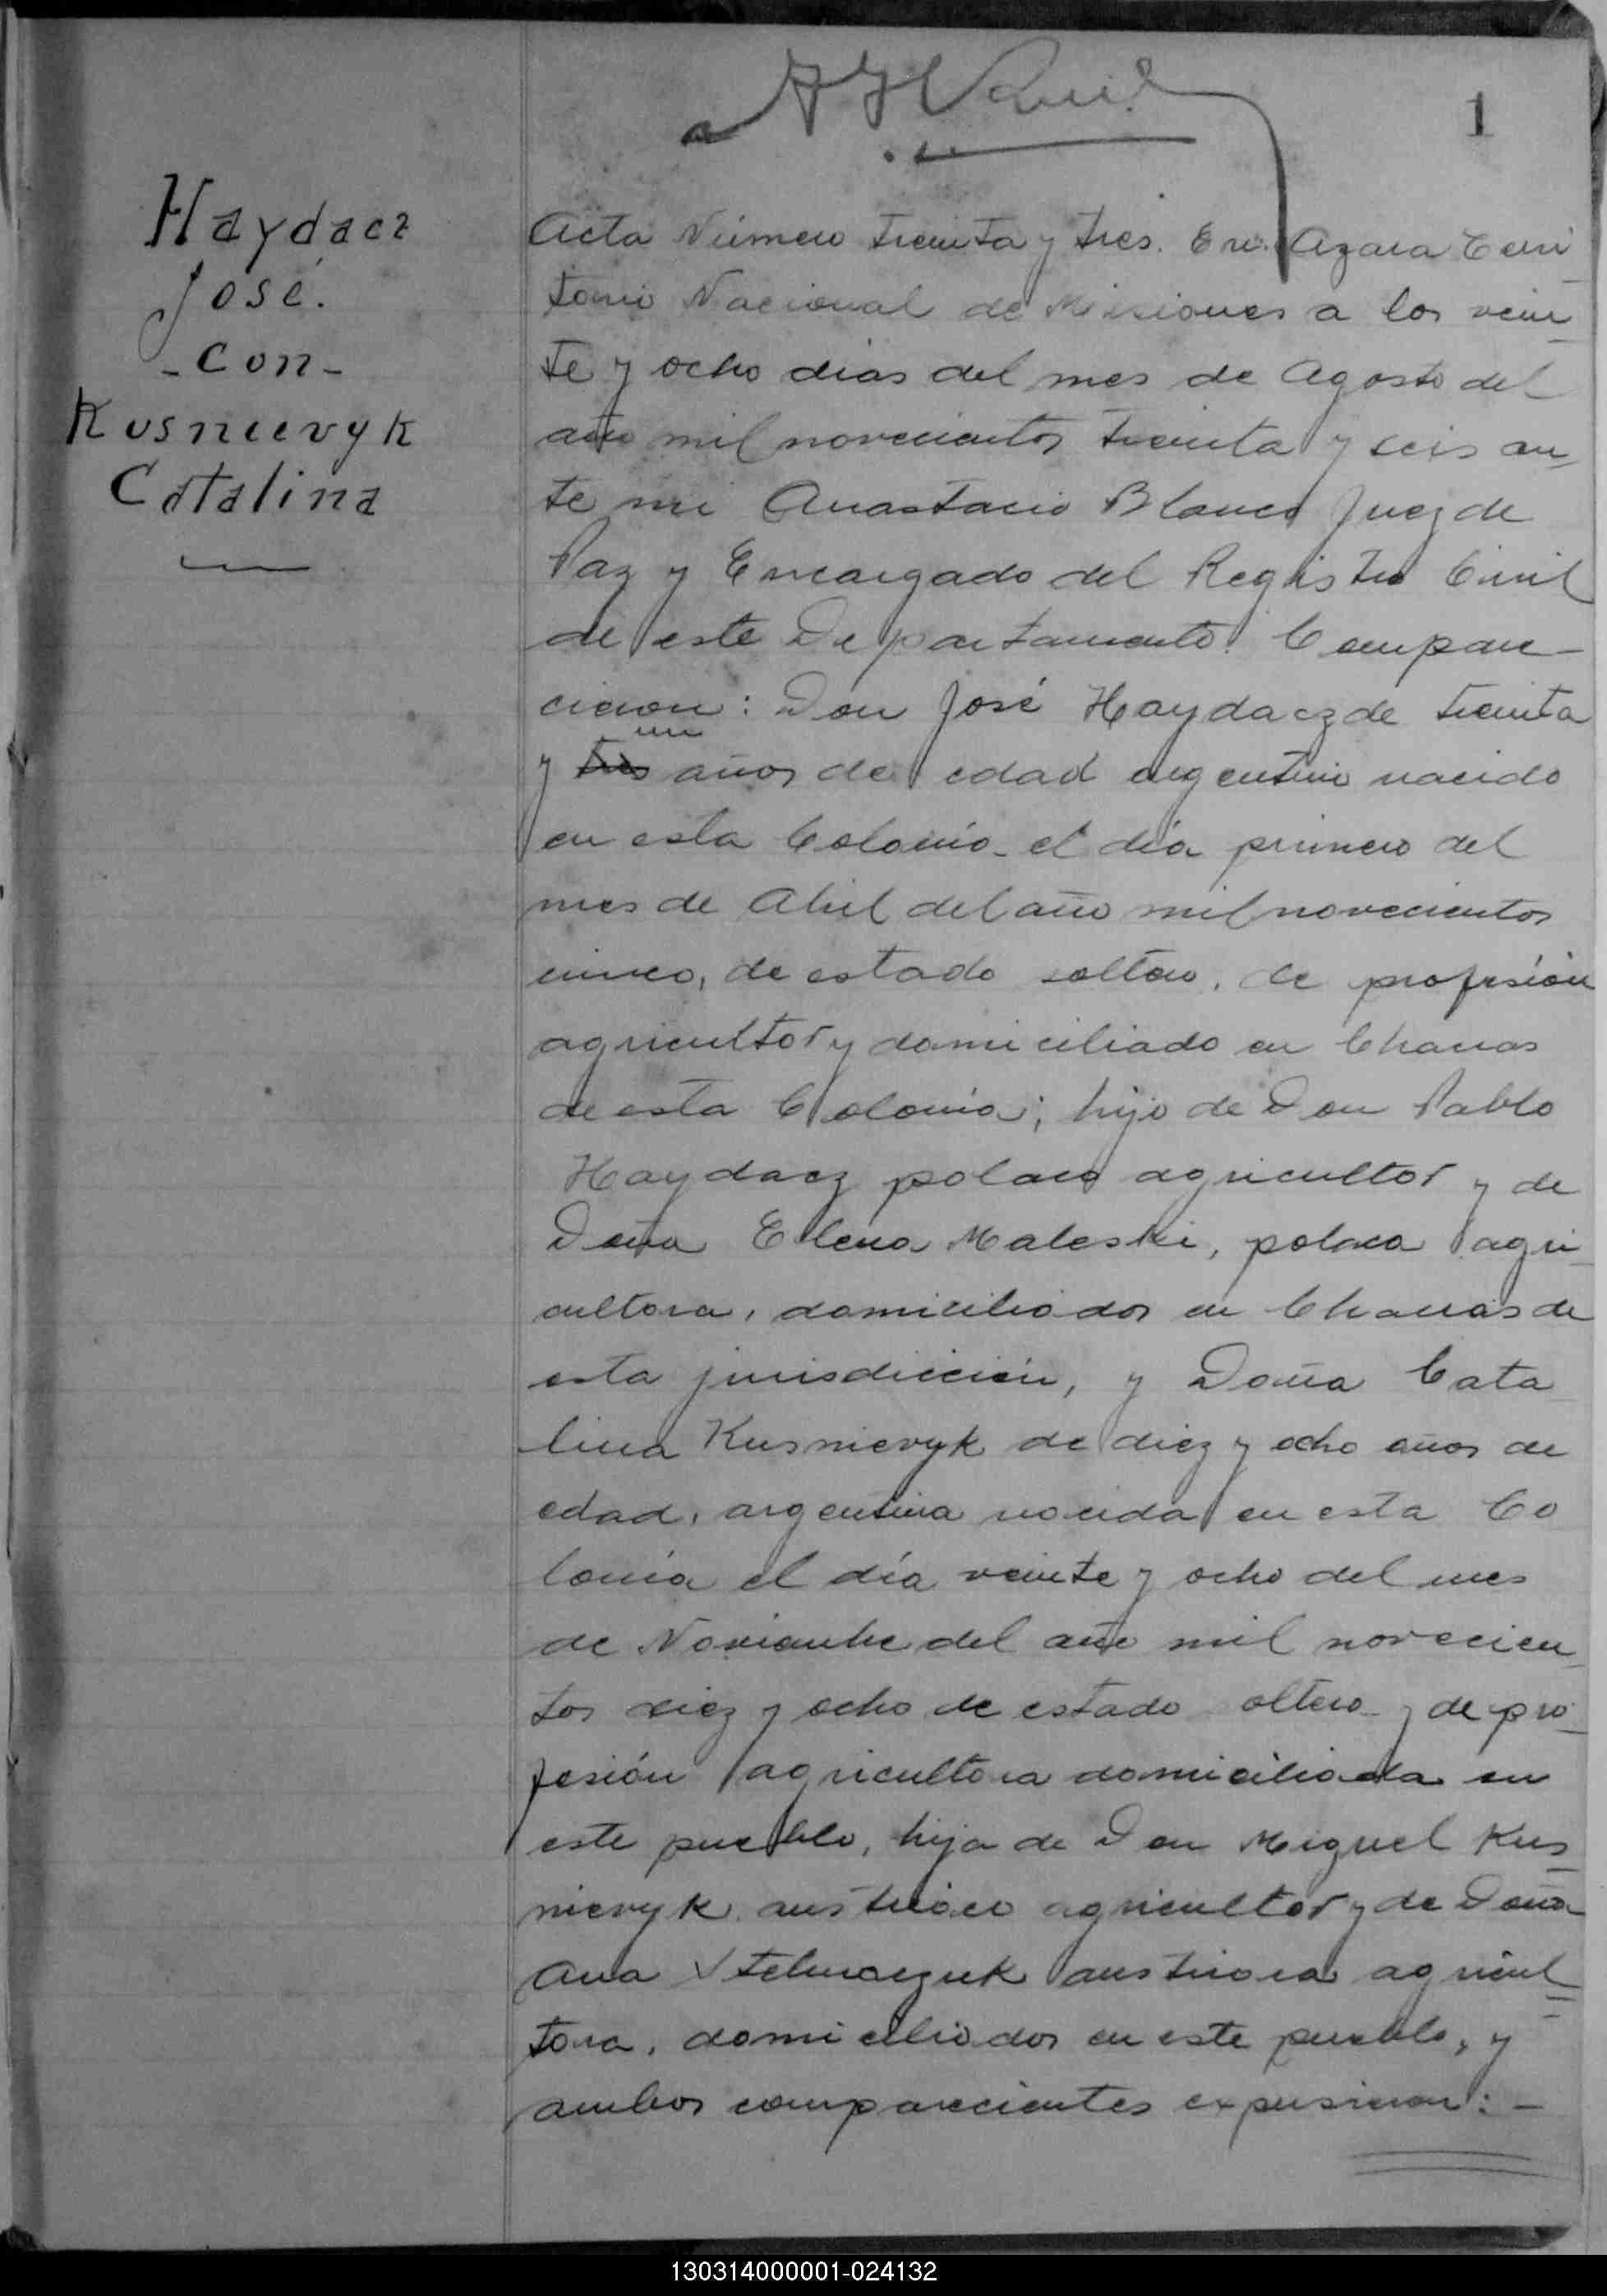 1
Haydacz
José.
- con -
Kusnievyk
Catalina
Acta Número treinta y tres. En Azara Terri
torio Nacional de Misiones a los vein
te y ocho dias del mes de Agosto del
año mil novecientos treinta y seis an
te mi Anastacio Blanco Juez de
Paz y Encargado del Registro Civil
de este Departamento. Compare
cieron: Don José Haydacz de treinta
un
y tres años de edad argentino nacido
en esta Colonia el día primero del
mes de Abril del año mil novecientos
cinco, de estado soltero, de profesión
agricultor y domiciliado en Chacras
de esta Colonia; hijo de Don Pablo
Haydacz polaco agricultor y de
Doña Elena Maleski, polaca agri
cultora, domiciliados en Chacras de
esta jurisdicción, y Doña Cata
lina Kusnievyk de diez y ocho años de
edad, argentina nacida en esta Co
lonia el día veinte y ocho del mes
de Noviembre del año mil novecien
tos diez y ocho de estado oltero y de pro
fesión agricultora domiciliada en
este pueblo, hija de Don Miguel Kus
nievyk austriaco agricultor y de Doña
Ana austriaca agricul
tora, domiciliados en este pueblo, y
ambos comparecientes expusieron: -
130314000001-024132